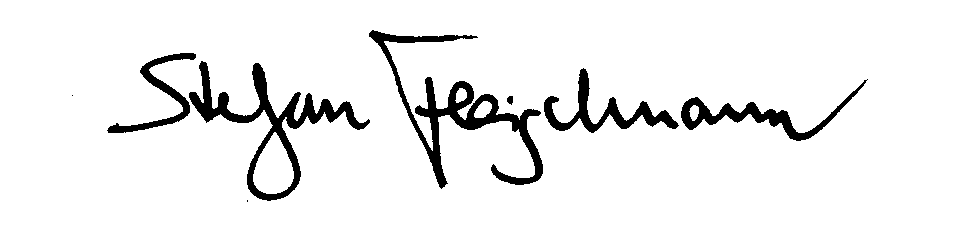 Stefan Fleischmann